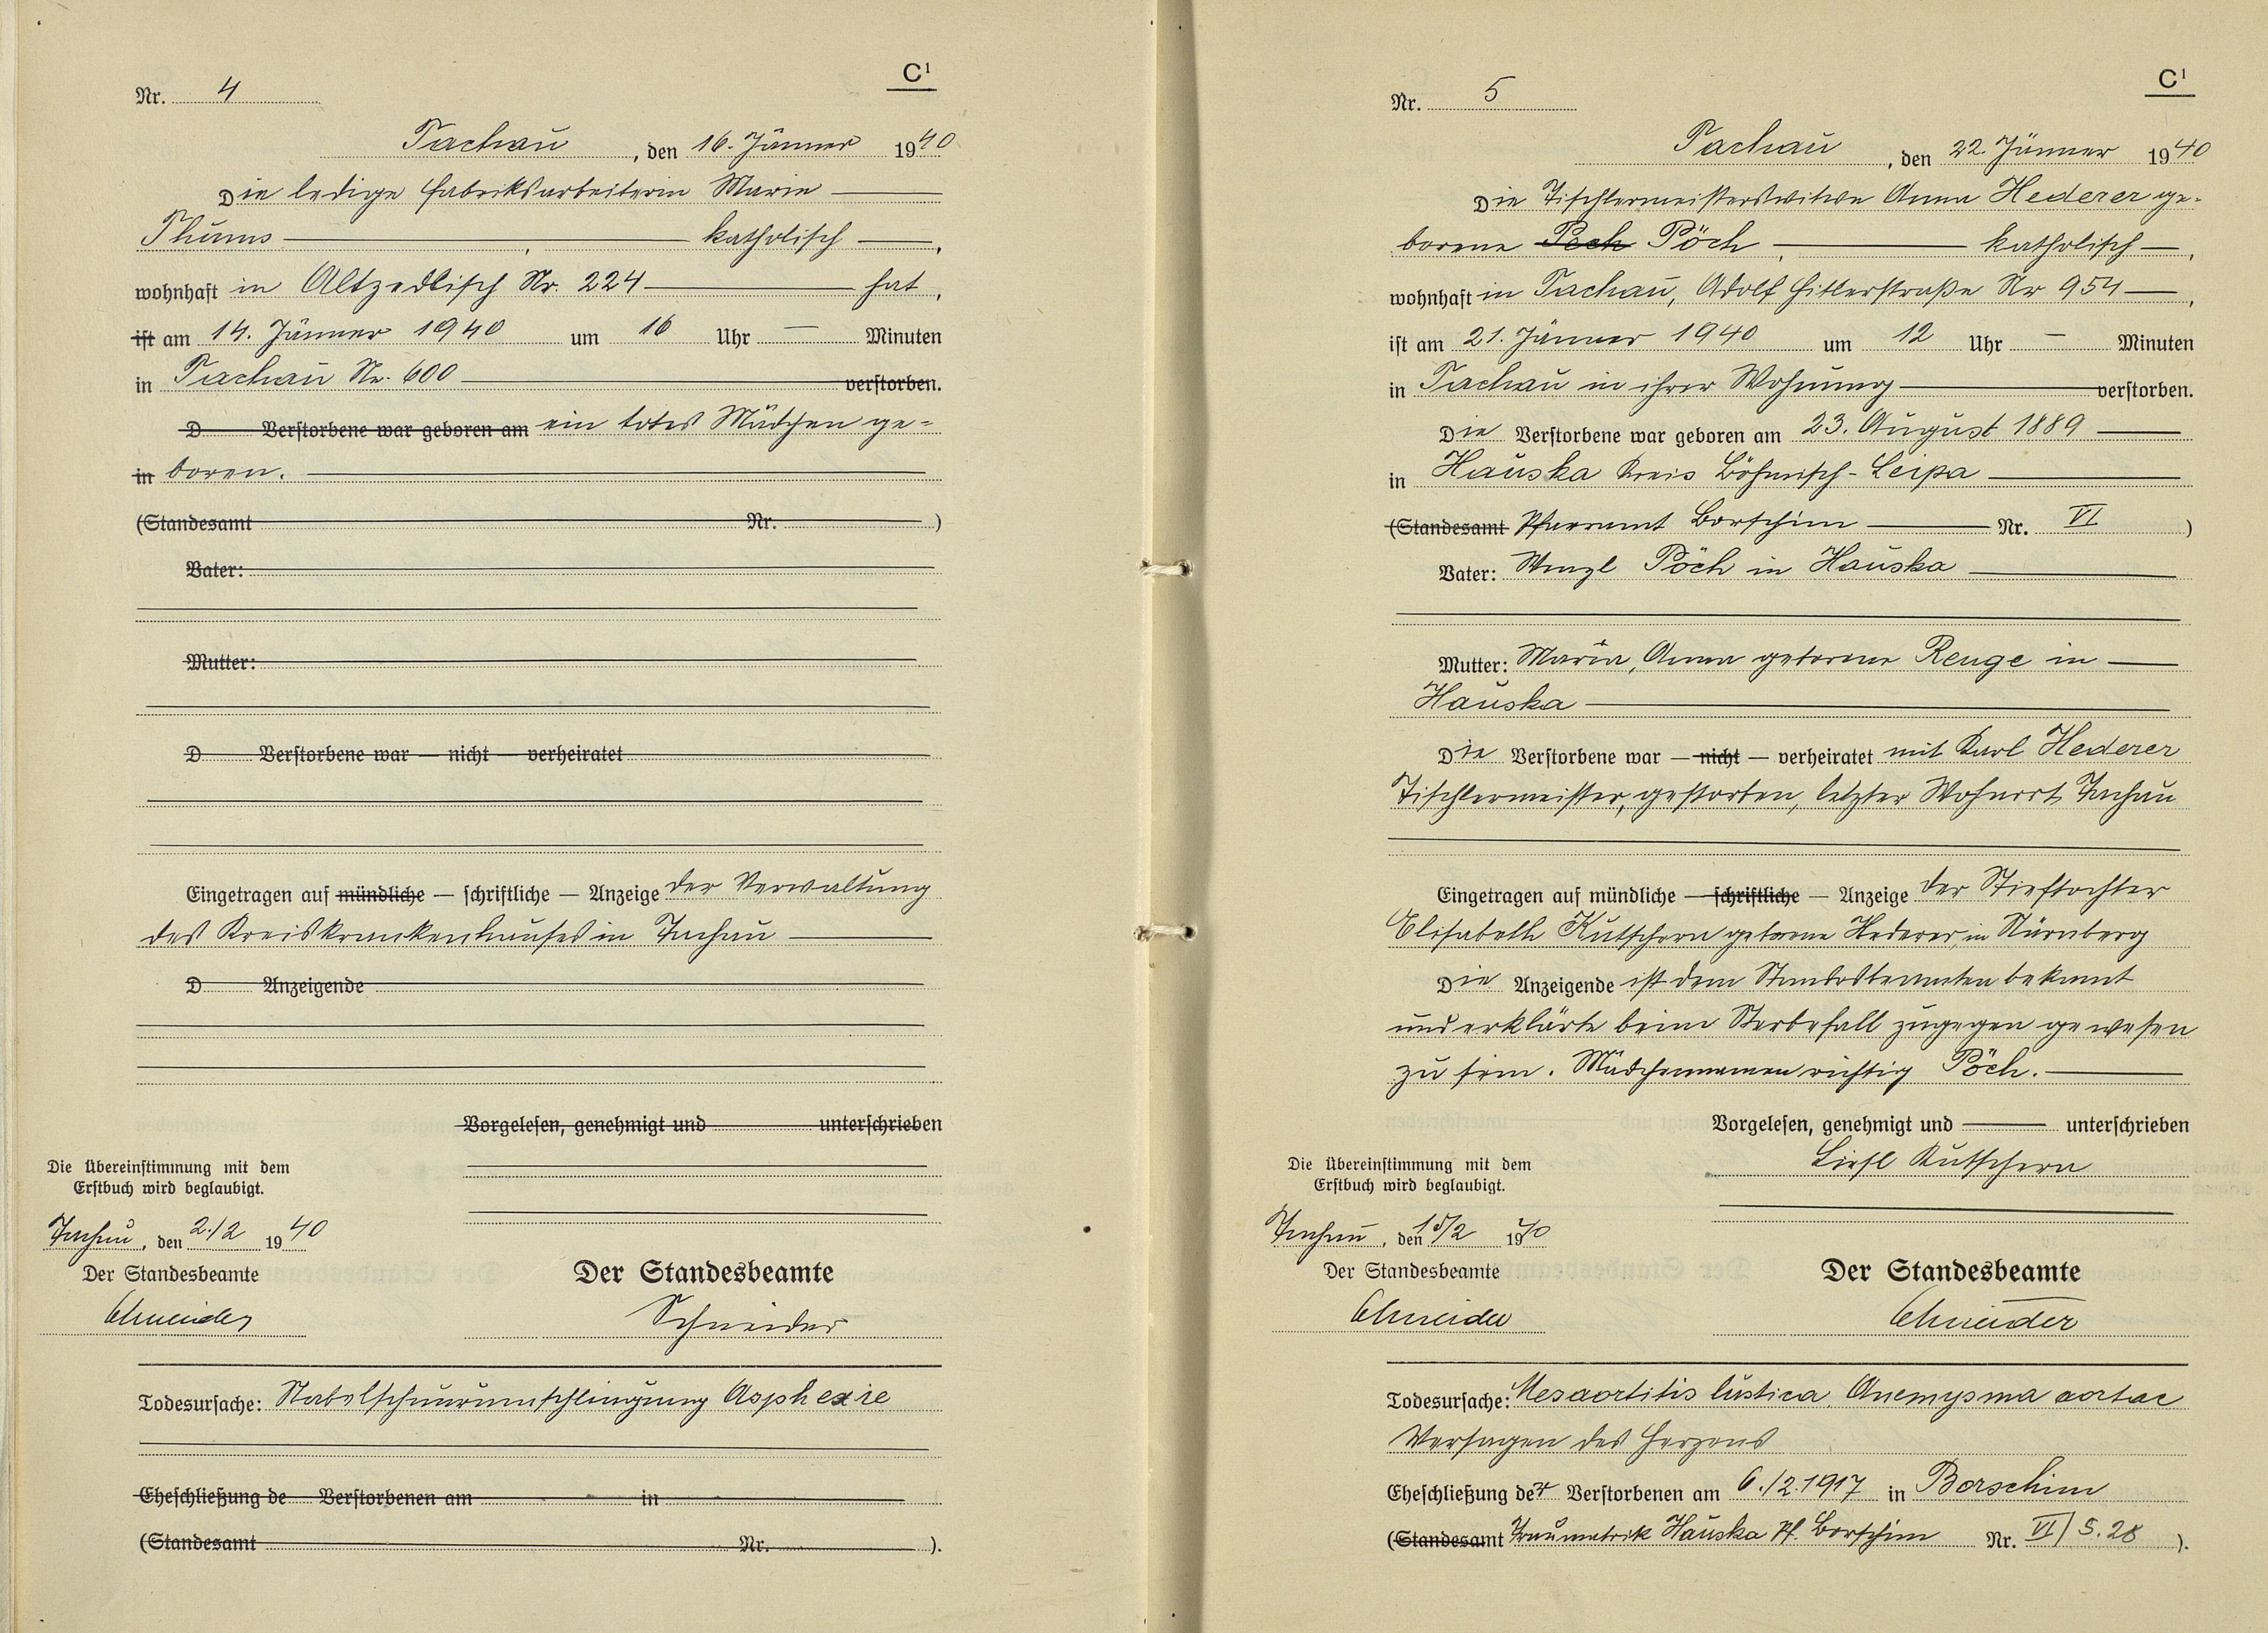 C¹
Nr. 4
Tachau, den 16. Jänner 1940
Die ledige Fabriksarbeiterin Marie
Thums, katholisch,
wohnhaft in Altzedlisch Nr. 224 hat,
ist am 14. Jänner 1940 um 16 Uhr — Minuten
in Tachau Nr. 600 verstorben.
D Verstorbene war geboren am ein totes Mädchen ge-
in boren.
(Standesamt Nr. )
Vater:
Mutter:
D Verstorbene war — nicht — verheiratet
Eingetragen auf mündliche — schriftliche — Anzeige der Verwaltung
des Kreiskrankenhauses in Tachau
D Anzeigende
Vorgelesen, genehmigt und unterschrieben
Die Übereinstimmung mit dem
Erstbuch wird beglaubigt.
Tachau, den 2./2 1940
Der Standesbeamte
Schneider
Der Standesbeamte
Schneider
Todesursache: Nabelschnurumschlingung Asphexie
Eheschließung de Verstorbenen am in
(Standesamt Nr. ).
C¹
Nr. 5
Tachau, den 22. Jänner 1940
Die Tischlermeisterswitwe Anna Hederer ge-
borene Pech Pöch, katholisch,
wohnhaft in Tachau, Adolf Hitlerstraße Nr 954,
ist am 21. Jänner 1940 um 12 Uhr — Minuten
in Tachau in ihrer Wohnung verstorben.
Die Verstorbene war geboren am 23. August 1889
in Hauska Kreis Böhmisch-Leipa
(Standesamt Pfarramt Borschim Nr. VI )
Vater: Wenzl Pöch in Hauska
Mutter: Maria, Anna geborene Renge in
Hauska
Die Verstorbene war — nicht — verheiratet mit Karl Hederer
Tischlermeister, gestorben, letzter Wohnort Tachau
Eingetragen auf mündliche — schriftliche — Anzeige der Stieftochter
Elisabeth Kutschera geborene Hederer, in Nürnberg
Die Anzeigende ist dem Standesbeamten bekannt
und erklärte beim Sterbefall zugegen gewesen
zu sein. Mädchennamen richtig Pöch.
Vorgelesen, genehmigt und unterschrieben
Liesl Kutschera
Die Übereinstimmung mit dem
Erstbuch wird beglaubigt.
Tachau, den 15/2 1940
Der Standesbeamte
Schneider
Der Standesbeamte
Schneider
Todesursache: Mesaortitis lustica, Anemysma aortae
Versagen des Herzens
Eheschließung der Verstorbenen am 6./2.1917 in Borschim
(Standesamt Traumatrik Hauska Pf. Borschim Nr. VI/S.28 ).